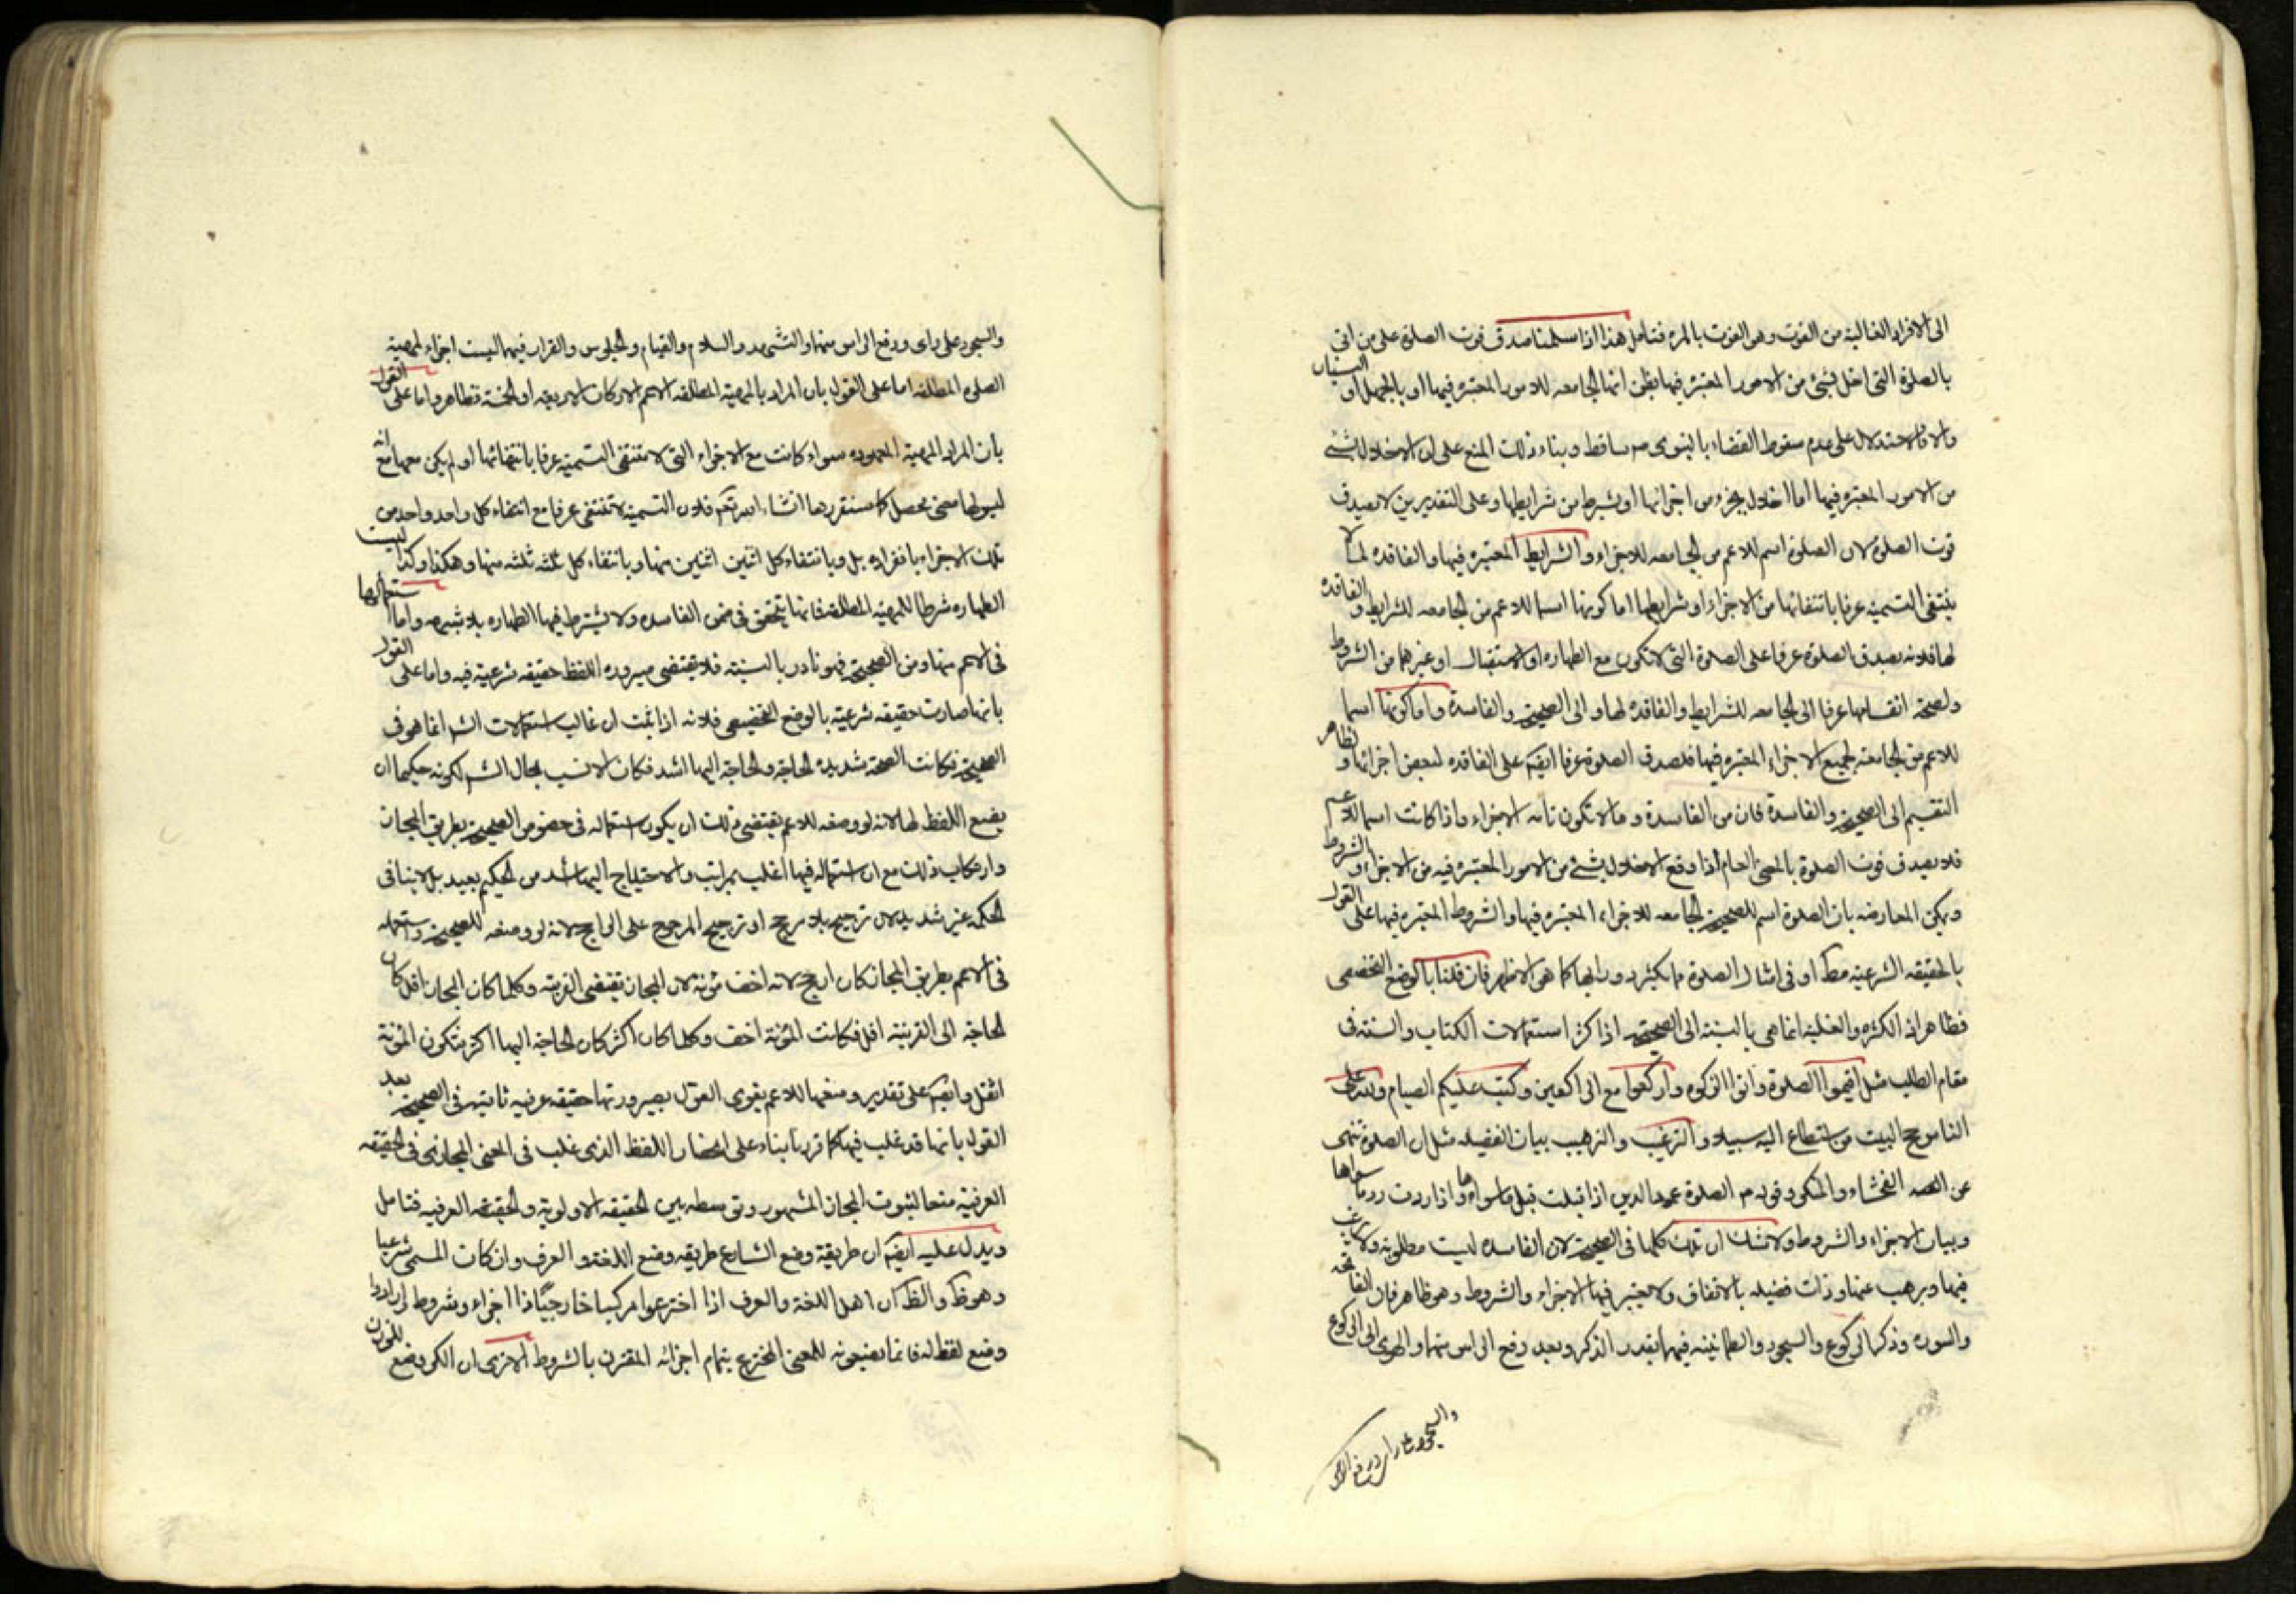 الى الافراد الغالبة من الفوت وهو الفوت بالمره فتامل هذا اذا سلمنا صدق فوت الصلوة على من اتى
بالصلوة التى اخل بشئ من الامور المعتبرة فيها بظن انها الجامعه للامور المعتبره فيها او بالجهل او النسيان
والا فالاستدلال على عدم سقوط القضاء بالنبوى م ساقط وبناء ذلك المنع على ان الاخلال بشئ
من الامور المعتبره فيها اما اخلال بجزء من اجزائها او بشرط من شرايطها وعلى التقديرين لا يصدق
فوت الصلوة لان الصلوة اسم للاعم من الجامعه للاجزاء والشرايط المعتبره فيها والفاقده لما لا
ينتفى التسمية عرفا بانتفائها من الاجزاء او شرايطها اما كونها اسما للاعم من الجامعه للشرايط والفاقده
لها فلانه يصدق الصلوة عرفا على الصلوة التى لا تكون مع الطهاره او الاستقبال او غيرهما من الشروط
ولصحة انقسامها عرفا الى الجامعه للشرايط والفاقده لها والى الصحيحة والفاسدة واما كونها اسما
للاعم من الجامعة لجميع الاجزاء المعتبره فيها فلصدق الصلوة عرفا ايضا على الفاقده لبعض اجزائها و لظاهر
التقسيم الى الصحيحة والفاسدة فان من الفاسدة وما لا تكون تامه الاجزاء واذا كانت اسما للاعم
فلا يصدق فوت الصلوة بالمعنى العام اذا وقع الاخلال بشئ من الامور المعتبره فيه من الاجزاء والشروط
ويمكن المعارضه بان الصلوة اسم للصحيحة الجامعه للاجزاء المعتبره فيها والشروط المعتبره فيها على القول
بالحقيقه الشرعيه مط او فى امثال الصلوة مما يكثر دورانها كما هو الاظهر فان قلنا بالوضع التخصصى
فظاهر اذ الكثره والغلبة انما هى بالنسبة الى الصحيحة اذ اكثر استعمالات الكتاب والسنة فى
مقام الطلب مثل اقيموا الصلوة واتوا الزكوه واركعوا مع الراكعين وكتب عليكم الصيام ولله على
الناس حج البيت من استطاع اليه سبيلا والترغيب والترهيب بيان الفضيله مثل ان الصلوة تنهى
عن الفحشاء والمنكر وقوله م الصلوة عمود الدين اذا قبلت قبل ما سواها واذا ردت رد ما سواها
وبيان الاجزاء والشروط ولا شك ان تلك كلها فى الصحيحة لان الفاسده ليست مطلوبة ولا يرغب
فيها ويرهب عنها وذات فضيله بالاتفاق ولا يعتبر فيها الاجزاء والشروط وهو ظاهر فان الفاتحة
والسوره وذكر الركوع والسجود والطمانينه فيهما بقدر الذكر وبعد رفع الراس منهما والهوى الى الركوع
والسجود على
والسجود على راى ورفع الراس منها والتشهد والسلام والقيام والجلوس والقرار فيهما ليست اجزاء لمهية
الصلوة المطلقه اما على القول بان المراد بالمهية المطلقه الاعم الاركان الاربعه او الخمسة فظاهر واما على القول
بان المراد المهية المعهوده سواء كانت مع الاجزاء التى لا تنتفى التسمية عرفا بانتفائها او لم يكن معها مع انه
ليس لها معنى محصل كما سنقررها انشاء الله تعالى فلان التسمية لا تنتفى عرفا مع انتفاء كل واحد واحد من
تلك الاجزاء بانفراده بل وبانتفاء كل اثنين اثنين منها وبانتفاء كل ثلثه ثلثه منها وهكذا وكذا ليست
الطهاره شرطا للمهية المطلقه فانها تتحقق فى ضمن الفاسده ولا يشترط فيها الطهاره بلا شبهه واما استعمالها
فى الاعم منها ومن الصحيحة فهو نادر بالنسبة فلا يقتضى صيروره اللفظ حقيقه شرعية فيه واما على القول
بانها صارت حقيقه شرعية بالوضع التخصيصى فلانه اذا ثبت ان غالب استعمالات الشر انما هو فى
الصحيحة فكانت الصحة شديدة الحاجة والحاجة اليها اشد فكان الانسب بحال الشر لكونه حكيما ان
يضع اللفظ لها لانه لو وضعه للاعم يقتضى ذلك ان يكون استعماله فى خصوص الصحيحة بطريق المجاز
وارتكاب ذلك مع ان استعماله فيها اغلب بمراتب والاحتياج اليها اشد من الحكيم بعيد بل لا ينافى
الحكمه غير شديد لان ترجيح بلا مرجح او ترجيح المرجوح على الراجح لانه لو وضعه للصحيحة واستعمله
فى الاعم بطريق المجاز كان ارجح لانه اخف مؤنة لان المجاز يقتضى القرينة وكلما كان المجاز اقل كان
الحاجه الى القرينة اقل فكانت المؤنة اخف وكلما كان اكثر كان الحاجة اليها اكثر فتكون المؤنة
اثقل وايضا على تقدير وضعها للاعم يقوى القول بصيرورتها حقيقه عرفيه ثانية فى الصحيحة بعد
القول بانها قد غلب فيها كما قررنا بناء على انحصار اللفظ الذى غلب فى المعنى المجازى فى الحقيقه
العرفية منعا لثبوت المجاز المشهور وتوسطه بين الحقيقه الاولوية والحقيقه العرفيه فتامل
ويدل عليه ايضا ان طريقة وضع الشارع طريقه وضع اللغة والعرف وان كان المسمى شرعيا
وهو ظ والظ ان اهل اللغة والعرف اذا اخترعوا مركبا خارجيا ذا اجزاء وشروط ارادوا
وضع لفظ له فانما يضعونه للمعنى المخترع بتمام اجزائه المقترن بالشروط الا ترى ان الكر وضع للوزن